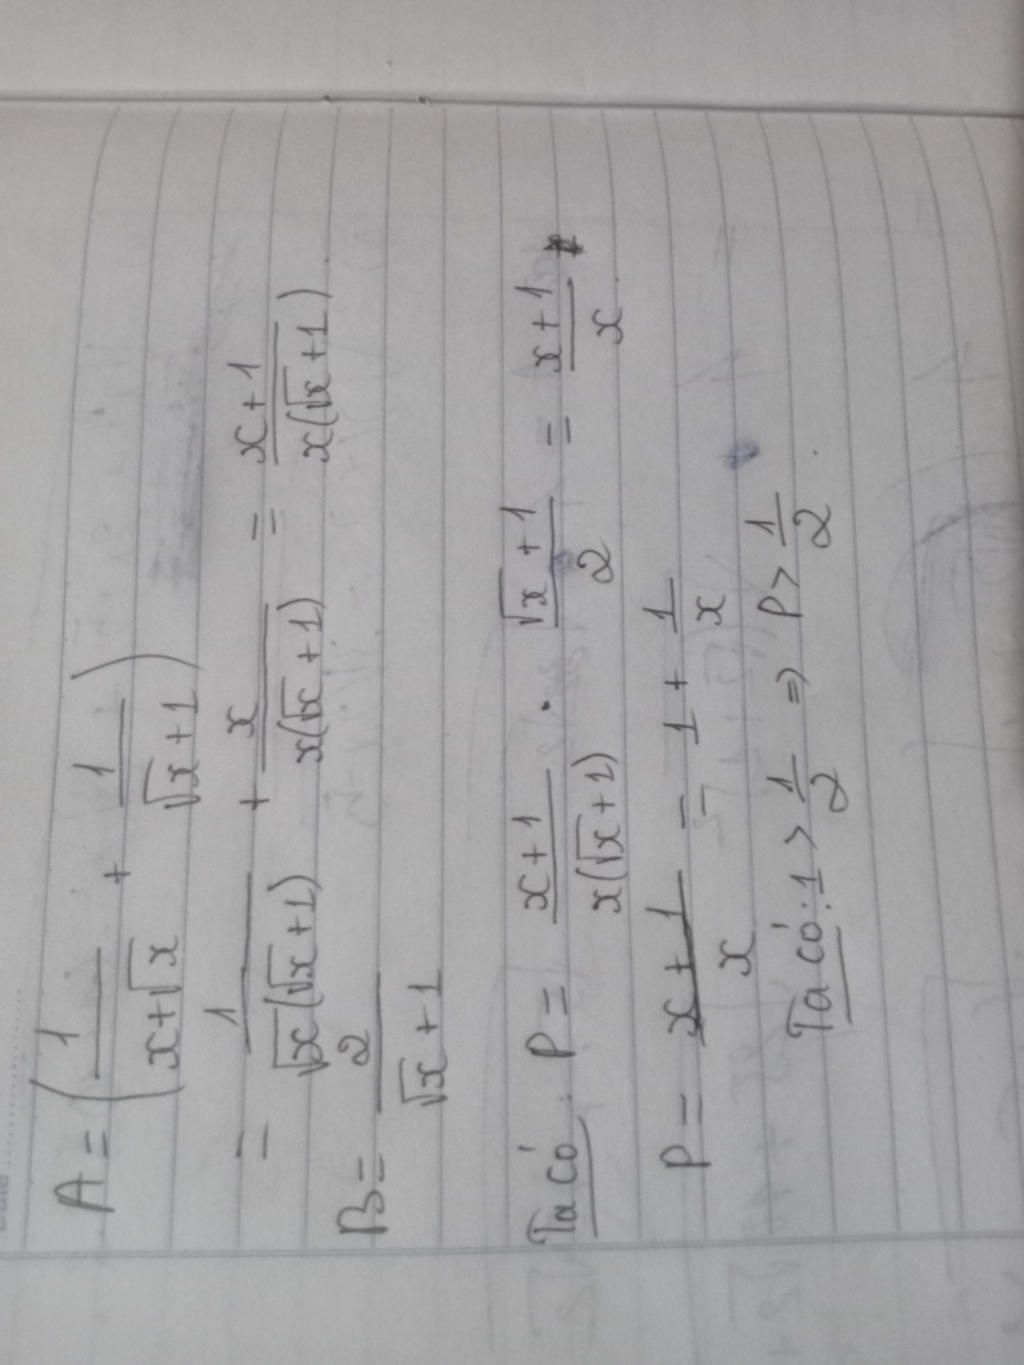 A = ( 1/(x+√x) + 1/(√x+1) )
= 1/(√x(√x+1)) + x/(x(√x+1)) = (x+1)/(x(√x+1))
B = 2/(√x+1)
Ta có: P = (x+1)/(x(√x+1)) . (√x+1)/2 = (x+1)/x
P = (x+1)/x = 1 + 1/x
Ta có: 1 > 1/2 => P > 1/2